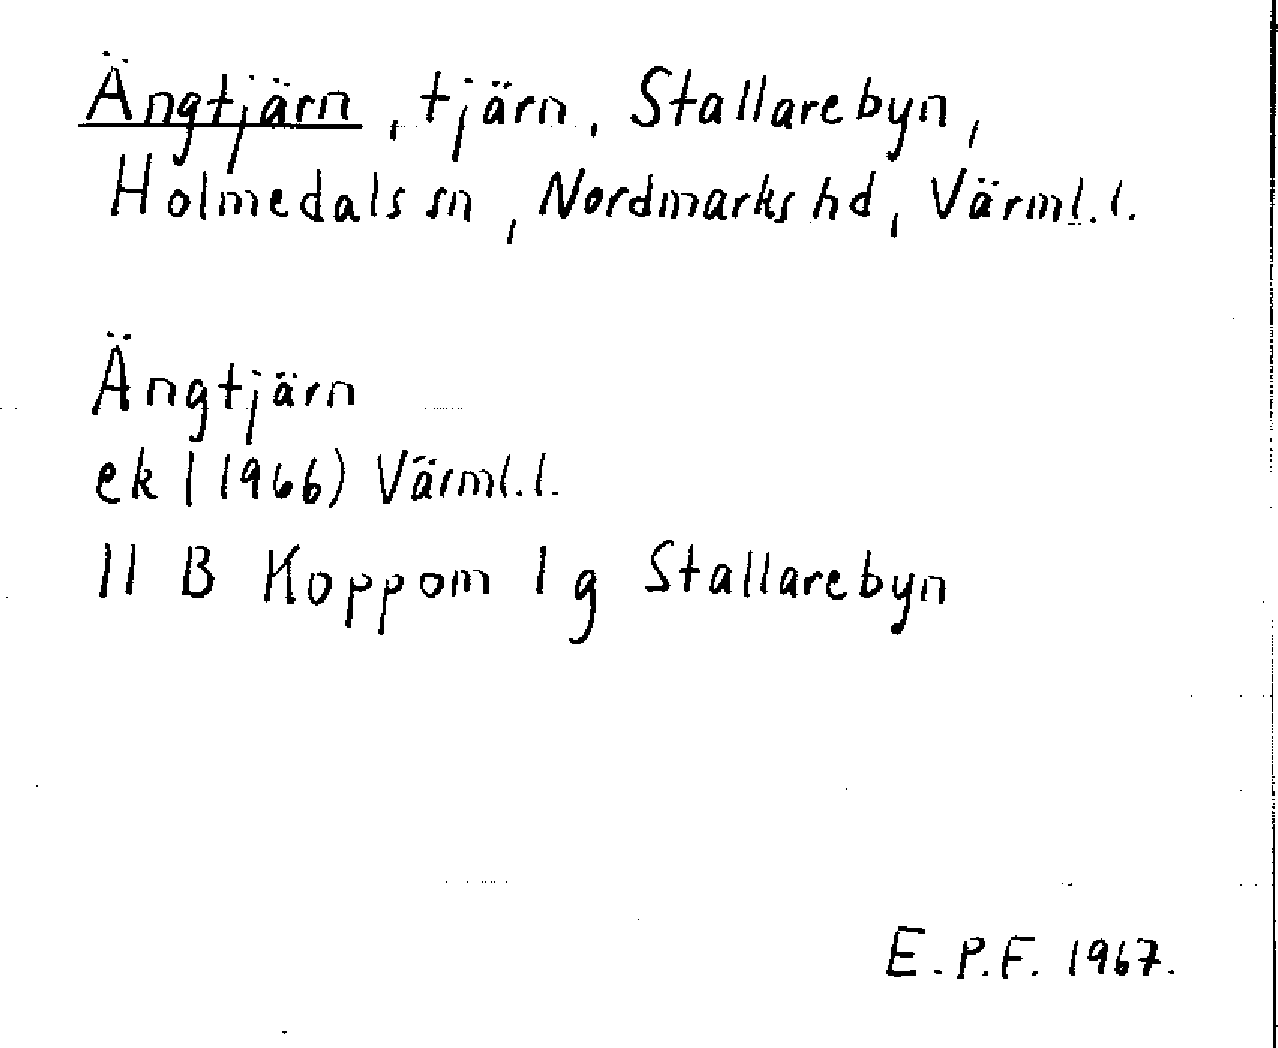 Ängtjärn, tjärn, Stallarebyn,
Holmedals sn, Nordmarks hd, Värml. l.
Ängtjärn
ek (1966) Värml. l.
11 B Koppom 1 g Stallarebyn
E.P.F. 1967.